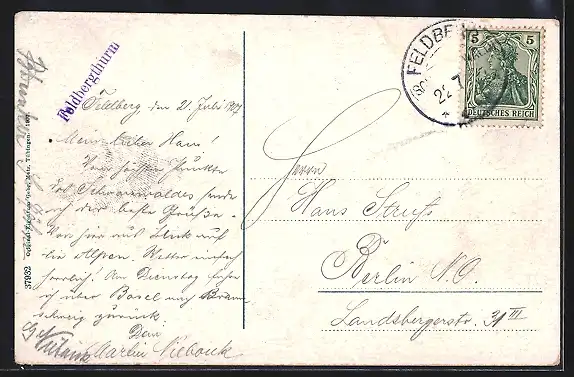 Feldbergthurm
Feldberg, den 21. Juli 1907
Mein lieber Hans!
Vom höchsten Punkte
des Schwarzwaldes sende
ich dir beste Grüße.
Von hier aus Blick auf
die Alpen. Wetter einfach
herrlich! Am Dienstag fahre
ich über Basel nach Braun-
schweig zurück.
Dein
Martin
37932
FELDBE
5 5
DEUTSCHES REICH
Herrn
Hans
Berlin N.O.
Landsbergerstr. 31 III